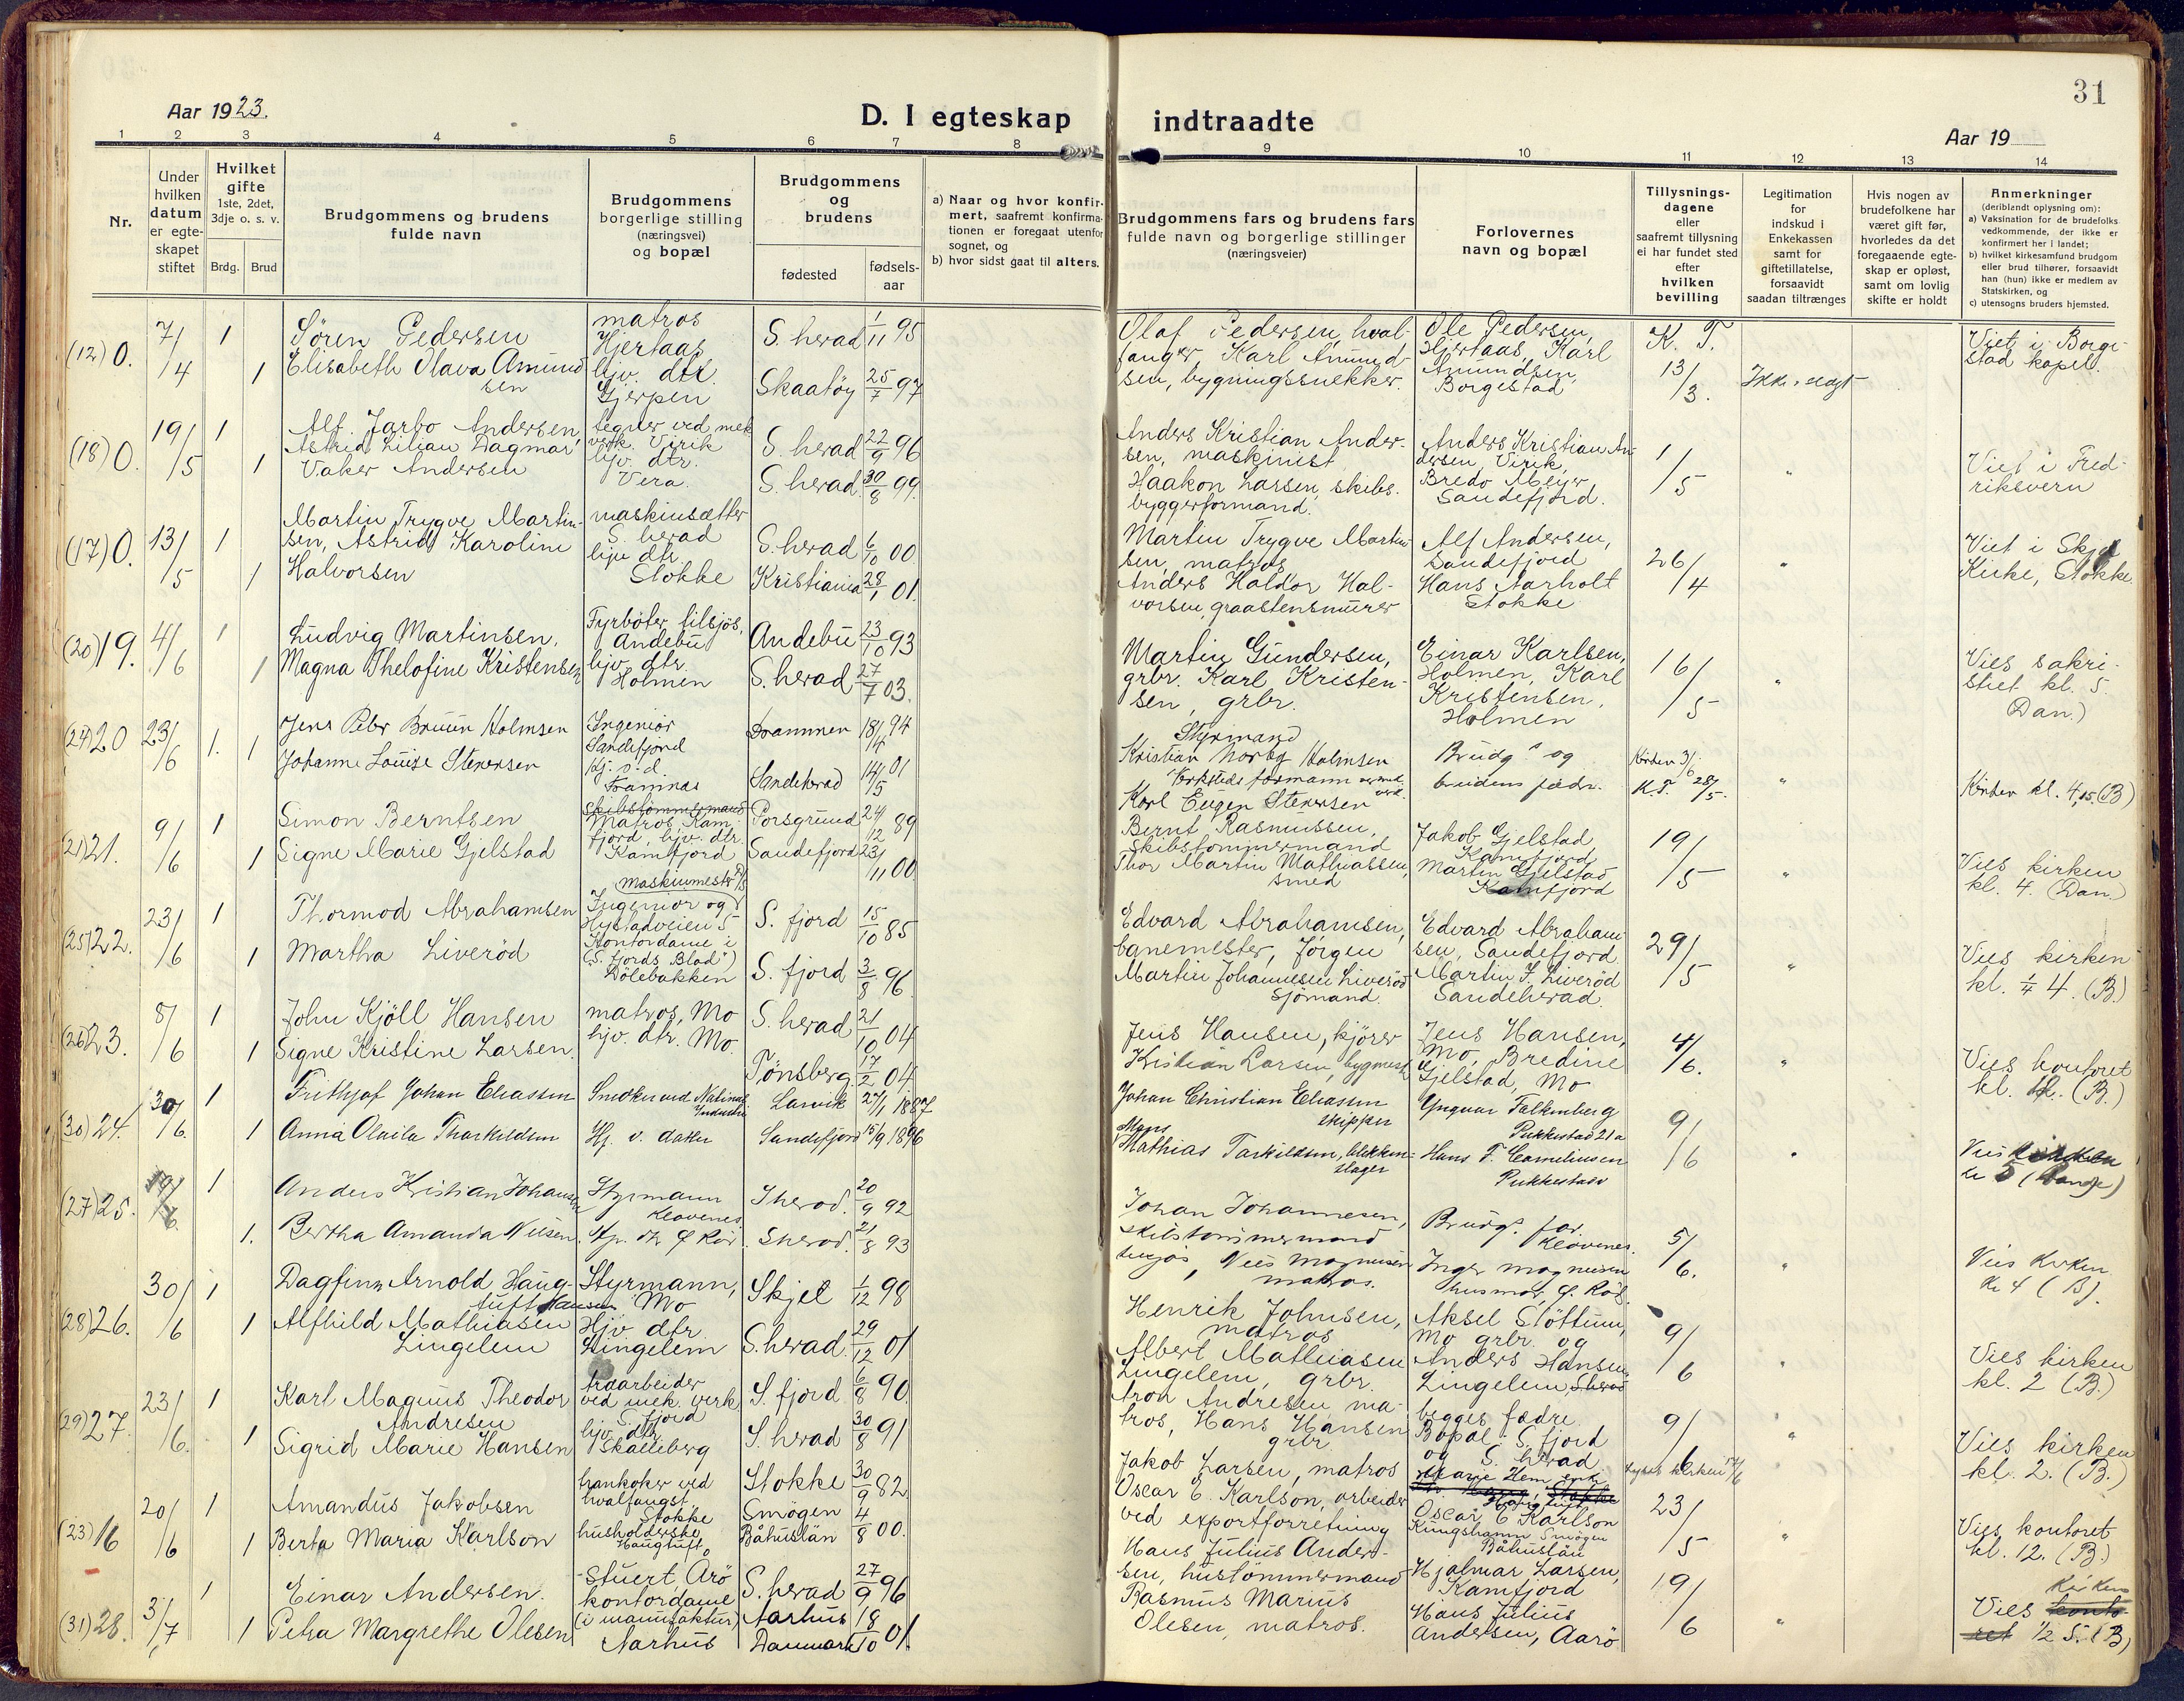 31
Aar 1923.
D. I egteskap indtraadte
Aar 19
1 2 3 4 5 6 7 8 9 10 11 12 13 14
Nr.
Under hvilken datum er egteskapet stiftet
Hvilket gifte 1ste, 2det, 3dje o. s. v.
Brdg. Brud
Brudgommens og brudens fulde navn
Brudgommens borgerlige stilling (næringsvei) og bopæl
Brudgommens og brudens
fødested
fødsels-aar
a) Naar og hvor konfirmert, saafremt konfirmationen er foregaat utenfor sognet, og
b) hvor sidst gaat til alters.
Brudgommens fars og brudens fars fulde navn og borgerlige stillinger (næringsveier)
Forlovernes navn og bopæl
Tillysningsdagene eller saafremt tillysning ei har fundet sted efter hvilken bevilling
Legitimation for indskud i Enkekassen samt for giftetillatelse, forsaavidt saadan tiltrænges
Hvis nogen av brudefolkene har været gift før, hvorledes da det foregaaende egteskap er opløst, samt om lovlig skifte er holdt
Anmerkninger (deriblandt oplysning om):
a) Vaksination for de brudefolks vedkommende, der ikke er konfirmert her i landet;
b) hvilket kirkesamfund brudgom eller brud tilhører, forsaavidt han (hun) ikke er medlem av Statskirken, og
c) utensogns bruders hjemsted.
(12) 0. 7/4 1 Søren Pedersen matros Hjertaas S. herad 1/11 95
1 Elisabeth Olava Amundsen hjv. dtr. Gjerpen Skaatöy 25/7 97
Olaf Pedersen, hvalfanger, Karl Amundsen, bygningssnekker.
Ole Pedersen, Hjertaas, Karl Amundsen, Borgestad
K. T. 13/3. Viet i Borgestad kapel.
(18) 0. 19/5 1 Alf. Jarbo Andersen, tegner ved mek verk. Virik S. herad 22/9 96
1 Astrid Lilian Dagmar Vaker Andersen hjv. dtr. Vera. S. herad 30/8 99.
Anders Kristian Andersen, maskinist Haakon Larsen, skibsbyggerformand.
Anders Kristian Andersen, Virik, Bredo Meyer, Sandefjord.
1/5 " Viet i Fredriksvern
(17) 0. 13/5 1 Martin Trygve Martinsen, maskinsetter S. herad S. herad 6/10 00
1 Astrid Karoline Halvorsen hjv dtr Stokke Kristiania 28/1 01.
Martin Trygve Martinsen, matros Anders Haldor Halvorsen, graastensmurer
Alf Andersen, Sandefjord Hans Aarholt Stokke
26/4 " Viet i Skjee Kirke, Stokke.
(20) 19. 4/6 1 Ludvig Martinsen, Fyrböter tilsjös, Andebu Andebu 23/10 93
1 Magna Thelofine Kristensen hjv. dtr. Holmen S. herad 27/7 03.
Martin Gundersen, grbr. Karl Kristensen, grbr.
Einar Karlsen, Holmen, Karl Kristensen, Holmen
16/5 " Vies sakristiet kl. 5. (Dan.)
(24) 20 23/6 1. Jens Peter Bruun Holmsen Ingeniør Sandefjord Drammen 18/4 94
1 Johanne Louise Stenersen Hj. v. d. Framnæs Sandeherad 14/5 01
Styrmand Kristian Norby Holmsen Verksteds formann Karl Eugen Stenersen
Brudgs og brudens fædre.
Kirken 3/6 K.T. 28/5. " Kirken kl. 4,15 (B)
(21) 21. 9/6 1 Simon Berntsen Matros Kamfjord, Porsgrund 24/12 89
1 Signe Marie Gjelstad hjv. dtr. Kamfjord Sandefjord 23/11 00
Bernt Rasmussen, Skibstømmermand Thor Martin Mathiassen, smed
Jakob Gjelstad, Kamfjord Martin Gjelstad Kamfjord
19/5 " Vies kirken kl. 4. (Dan.)
(25) 22. 23/6 1 Thormod Abrahamsen Ingeniør og maskinmester Hystadveien 5 S. fjord 15/10 85
1 Martha Liveröd Kontordame i (S. fjords Blad") Dölebakken S. fjord 3/8 96
Edvard Abrahamsen, banemester, Jørgen Martin Johannesen Liveröd Sjömand.
Edvard Abrahamsen, Sandefjord Martin J. Liveröd Sandeherad
29/5 " Vies kirken kl. 1/4 4. (B.)
(26) 23. 8/6 1 John Kjöll Hansen matros, Mo S. herad 21/10 04
1 Signe Kristine Larsen. hjv. dtr. Mo. Tönsberg 17/2 04
Jens Hansen, kjører Kristian Larsen, bygmest.
Jens Hansen, Mo, Bredine Gjelstad, Mo
4/6. " Vies kontoret kl. (B.)
(30) 24. 30/6. 1 Frithjof Johan Eliassen Snekker ved Natinal Industri Larvik 27/1 1887
1 Anna Olaila Tharkildsen Hj. v. datter Sandefjord 15/9 1896
Johan Christian Eliassen skipper Mathias Tarkildsen, blikkenslager
Yngvar Falkenberg Pukkestad 21a Hans T. Corneliussen Pukkestad
9/6 " Vies kl 5
(27) 25. 1 Anders Kristian Johansen Styrmann Klavenes S herad. 20/9 92
1. Bertha Amanda Nilsen. Hjv. dtr S herad. 21/8 93
Johan Johannesen, skibstømmermand Nils Magnussen matros.
Brudgs. far Klavenes. Inger Magnussen husmor,
5/6. " Vies Kirken kl 4 (B).
(28) 26. 30/6 1 Dagfinn Arnold Haugtuft Hansen Styrmann, Mo Skjee 1/12 98
1 Alfhild Mathiasen Lingelem Hjv dtr. Lingelem S. herad. 29/12 01
Henrik Johnsen, matros Albert Mathiasen Lingelem, grbr.
Aksel Slöttum, Mo grbr. og Anders Hansen Lingelem
9/6 " Vies kirken kl. 2 (B.)
(29) 27. 23/6. 1 Karl Magnus Theodor Andresen traarbeider ved mek. verk S. fjord S. fjord 6/8 90.
1 Sigrid Marie Hansen hjv. dtr. Skalleberg S. herad 30/8 91
Aron Andresen matros, Hans Hansen grbr.
begges fædre. Bopæl: S. fjord og S. herad
9/6 " Vies kirken kl. 2. (B.)
(23) 16 20/6 1 Amandus Jakobsen trankoker ved hvalfangst, Stokke Stokke 30/9 82
1 Berta Maria Karlson husholderske Haugtuft. Smögen Båhuslän 4/8 00.
Jakob Larsen, matros Oscar E. Karlson, arbeider ved exportforretning
Oscar E Karlson Kungshamn Smögen Båhuslän
23/5 " Vies kontoret kl. 12. (B.)
(31) 28. 3/7 1 Einar Andersen. Stuert Arö S. herad 27/9 96
1 Petra Margrethe Olesen kontordame (i manufaktur) Aarhus Aarhus Danmark 18/10 01.
Hans Julius Andersen, hustømmermand Rasmus Marius Olesen, matros.
Hjalmar Larsen, Kamfjord Hans Julius Andersen, Aarö
19/6 " Vies kirken kontoret 1/2 5. (B)